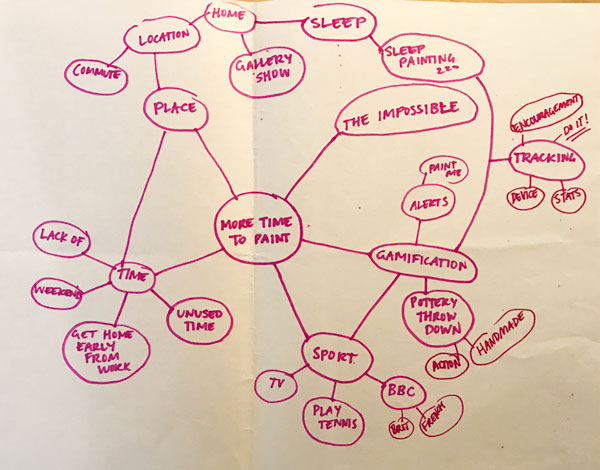 HOME
SLEEP
LOCATION
COMMUTE
GALLERY
SHOW
SLEEP
PAINTING
PLACE
THE IMPOSSIBLE
ENCOURAGEMENT
DO IT!
TRACKING
DEVICE
STATS
PAINT
ME
ALERTS
MORE TIME
TO PAINT
GAMIFICATION
LACK OF
TIME
WEEKEND
UNUSED
TIME
GET HOME
EARLY
FROM
WORK
POTTERY
THROW
DOWN
ACTION
HANDMADE
SPORT
TV
PLAY
TENNIS
BBC
FRENCH